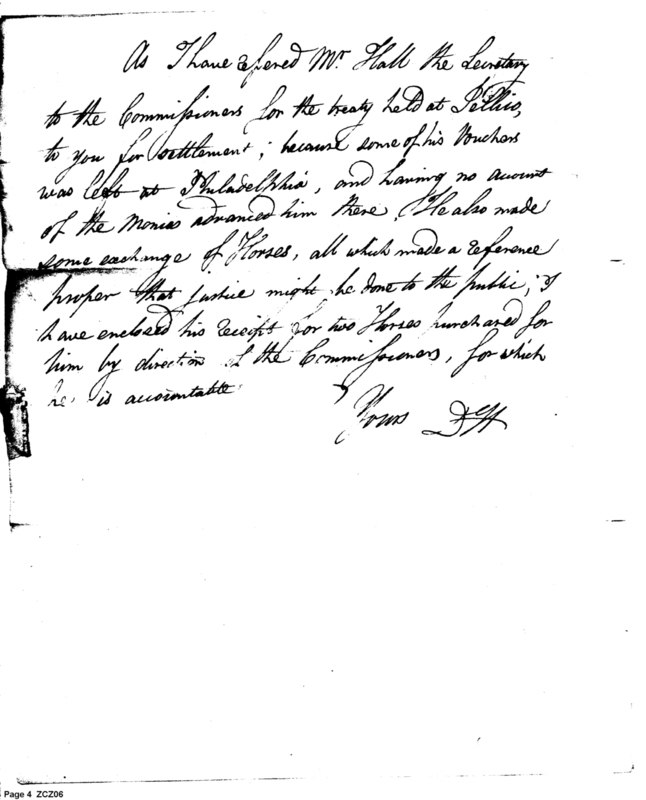 As I have refered Mr. Hall the Secretary
to the Commissioners for the treaty held at Tellico,
to you for settlement; because some of his Vouchers
was left at Philadelphia, and having no account
of the Monies advanced him there. He also made
some exchange of Horses, all which made a reference
proper that justice might be done to the public; I
have enclosed his receipt for two Horses purchased for
him by direction of the Commissioners, for which
he is accountable
Yours DH
Page 4 ZCZ06